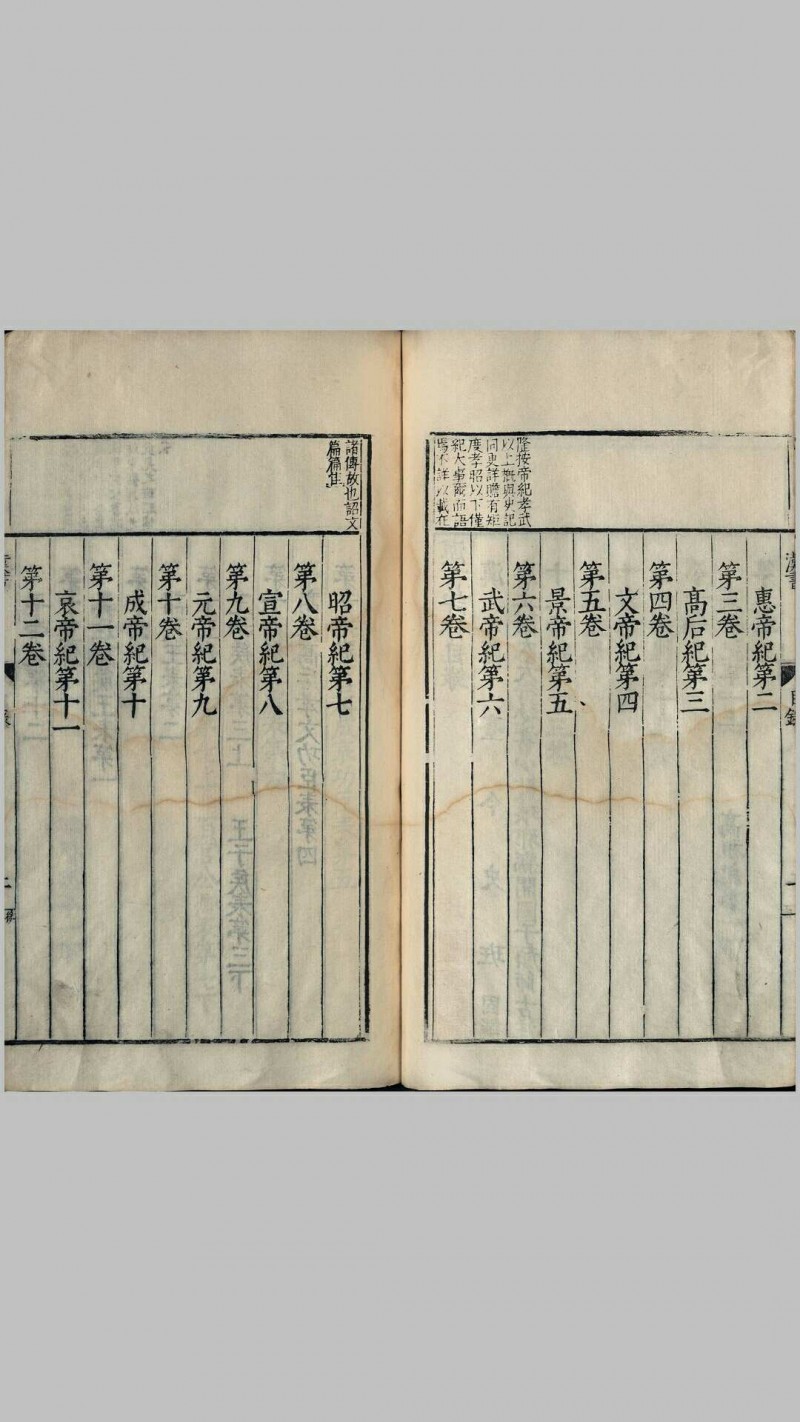 隆按帝紀孝武
以上槪與史記
同更詳贍有矩
度孝昭以下僅
紀大事爾而語
焉不詳以載在
惠帝紀第二
第三卷
髙后紀第三
第四卷
文帝紀第四
第五卷
景帝紀第五
第六卷
武帝紀第六
第七卷
諸傳故也詔文
篇篇佳
昭帝紀第七
第八卷
宣帝紀第八
第九卷
元帝紀第九
第十卷
成帝紀第十
第十一卷
哀帝紀第十一
第十二卷